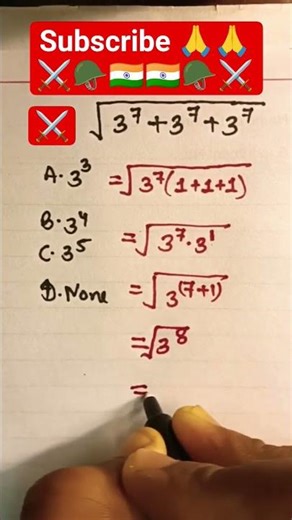 Subscribe 🙏🙏
⚔️🪖🇮🇳🇮🇳🪖⚔️
⚔️ √(3⁷+3⁷+3⁷)
A. 3³ =√(3⁷(1+1+1))
B. 3⁴
C. 3⁵ =√(3⁷·3¹)
D. None =√(3⁽⁷⁺¹⁾)
=√(3⁸)
=